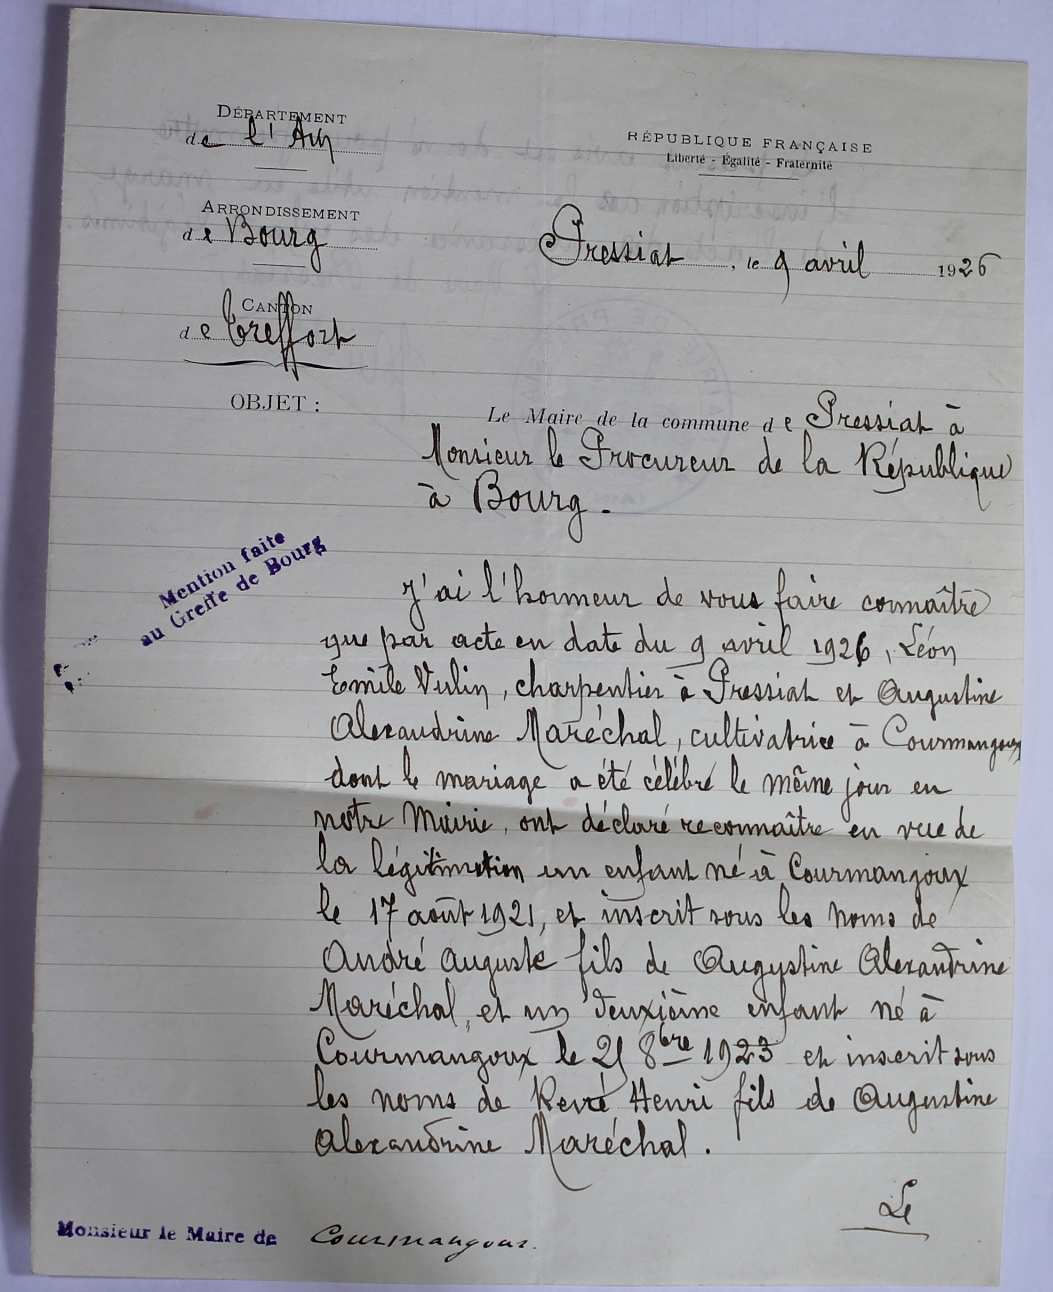 DÉPARTEMENT
de l'Ain
RÉPUBLIQUE FRANÇAISE
Liberté - Égalité - Fraternité
ARRONDISSEMENT
de Bourg
Pressiat, le 9 avril 1926
CANTON
de Treffort
OBJET :
Le Maire de la commune de Pressiat à
Monsieur le Procureur de la République
à Bourg.
Mention faite
au Greffe de Bourg
J'ai l'honneur de vous faire connaître
que par acte en date du 9 avril 1926, Léon
Emile Vulin, charpentier à Pressiat et Augustine
Alexandrine Maréchal, cultivatrice à Courmangoux
dont le mariage a été célébré le même jour en
notre Mairie, ont déclaré reconnaître en vue de
la légitimation un enfant né à Courmangoux
le 17 août 1921, et inscrit sous les noms de
André Auguste fils de Augustine Alexandrine
Maréchal, et un deuxième enfant né à
Courmangoux le 21 8bre 1923 et inscrit sous
les noms de René Henri fils de Augustine
Alexandrine Maréchal.
Le
Monsieur le Maire de Courmangoux.